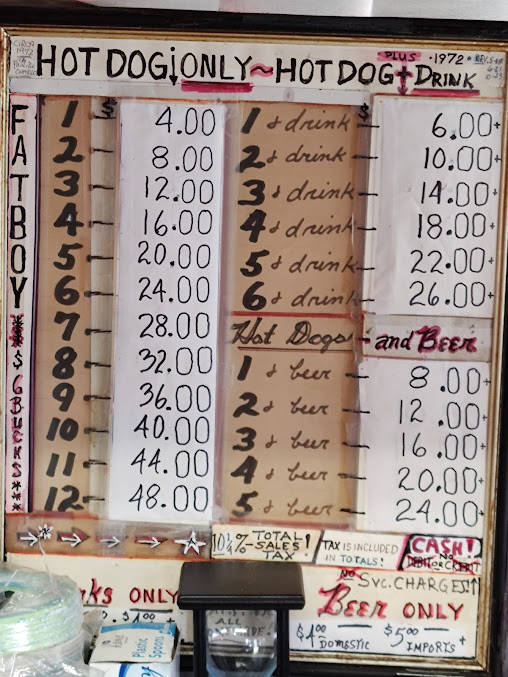 CIRCA 1972
HOT DOG ↓ ONLY ~ HOT DOG + DRINK
PLUS · 1972 *
FATBOY
* * * $ 6 BUCKS * * *
$
1 - 4.00
2 - 8.00
3 - 12.00
4 - 16.00
5 - 20.00
6 - 24.00
7 - 28.00
8 - 32.00
9 - 36.00
10 - 40.00
11 - 44.00
12 - 48.00
$
1 & drink - 6.00+
2 & drink - 10.00+
3 & drink - 14.00+
4 & drink - 18.00+
5 & drink - 22.00+
6 & drink - 26.00+
Hot Dogs - and Beer
1 & beer - 8.00+
2 & beer - 12.00+
3 & beer - 16.00+
4 & beer - 20.00+
5 & beer - 24.00+
10 1/4 % TOTAL!
-SALES-
TAX
TAX IS INCLUDED
IN TOTALS!
CASH!
NO
DEBIT OR CREDIT
NO SVC. CHARGES!!
ks ONLY
$1.00
ALL
Plastic
Spoons
BEER ONLY
$4.00 DOMESTIC
$5.00 IMPORTS +